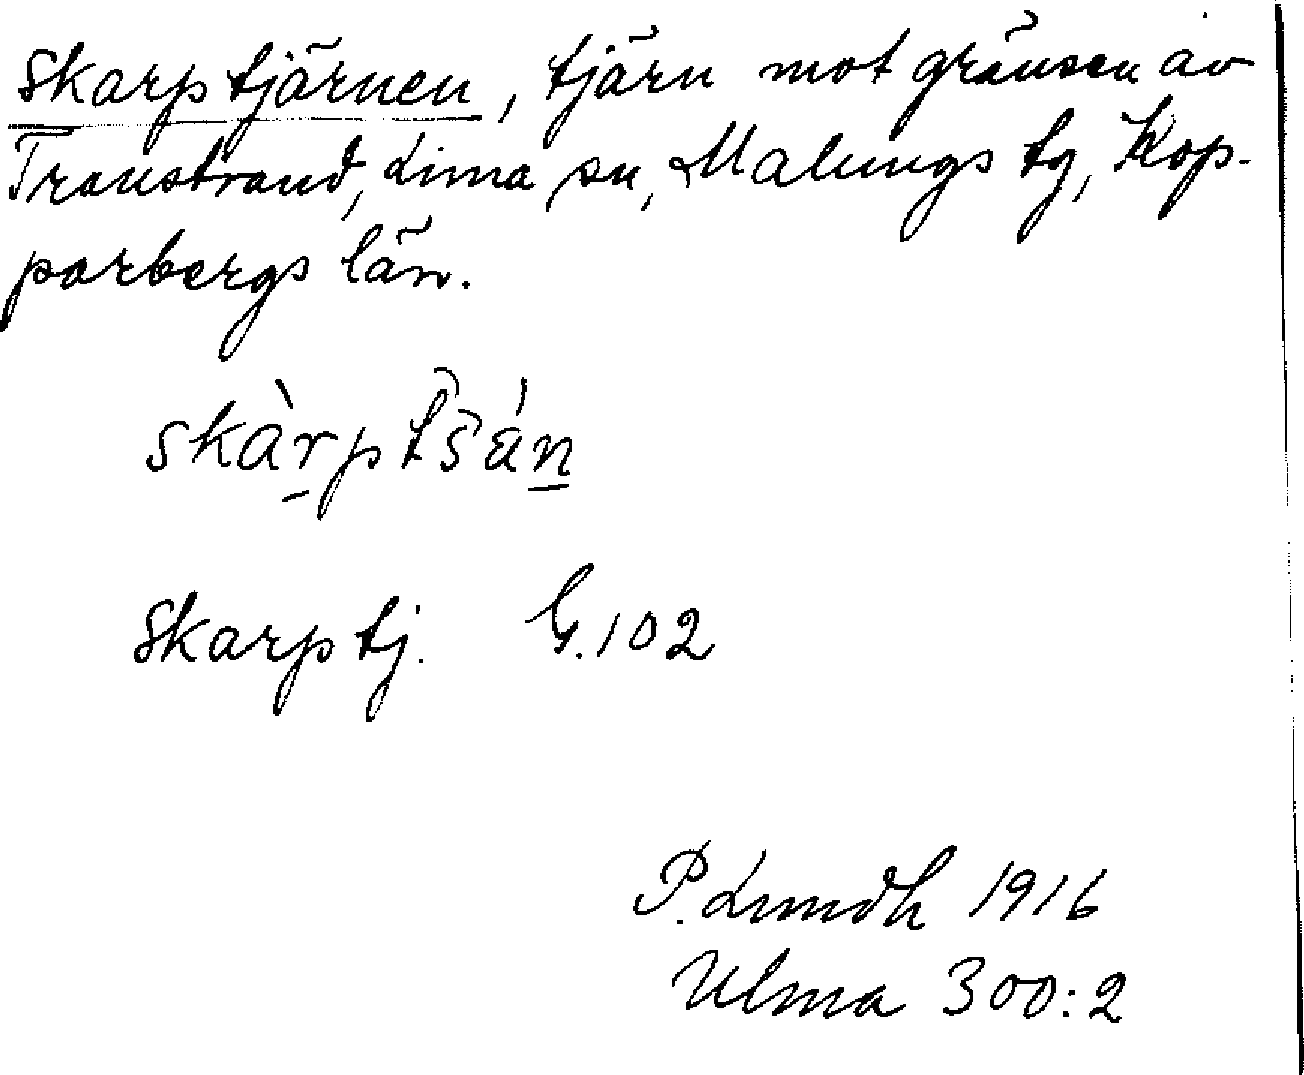 Skarptjärnen, tjärn mot gränsen av
Transtrand, Lima sn, Malungs tg, Kop-
parbergs län.
skàrptšán
Skarptj. G.102
P. Lundh 1916
Ulma 300:2